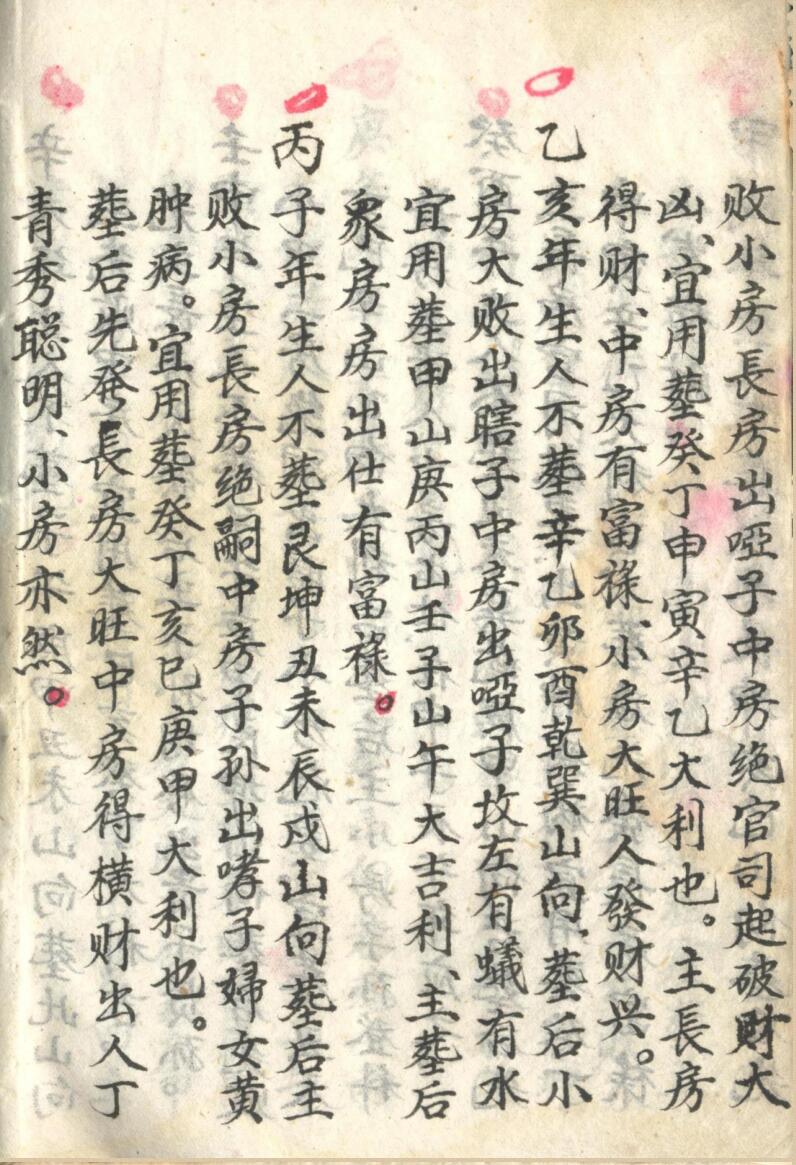 败小房長房出啞子中房绝官司起破财大
凶、宜用塟癸丁申寅辛乙大利也。主長房
得财、中房有富禄、小房大旺人發财兴。
乙亥年生人不塟辛乙卯酉乾巽山向、塟后小
房大败出瞎子中房出啞子坟左有蟻有水
宜用塟甲山庚丙山壬子山午大吉利、主塟后
衆房房出仕有富禄。
丙子年生人不塟艮坤丑未辰戍山向塟后主
败小房長房绝嗣中房子孙出哮子婦女黄
肿病。宜用塟癸丁亥巳庚甲大利也。
塟后先発長房大旺中房得横财出人丁
青秀聪明、小房亦然。